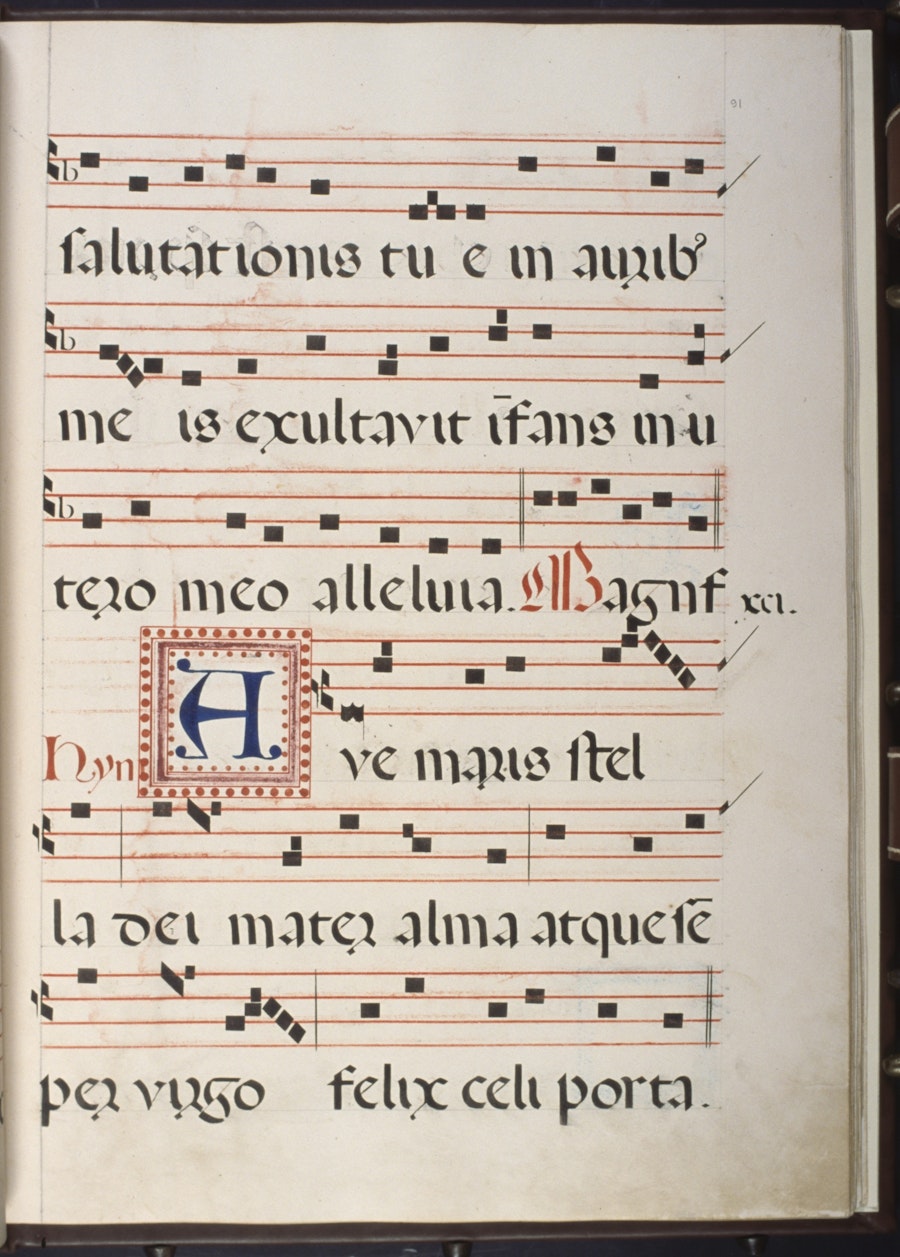 91
salutationis tu e in aurib⁹
me is exultavit īfans in u
tero meo alleluia. Magnf xci.
Hyn A ve maris stel
la dei mater alma atque sē
per virgo felix celi porta.